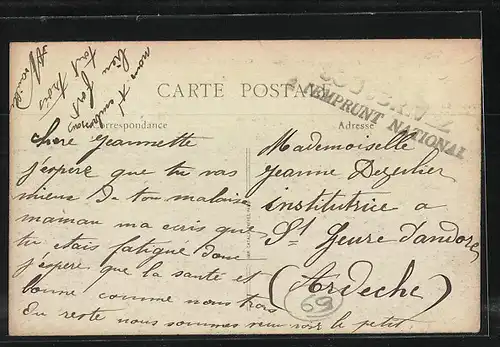 CARTE POSTALE
Correspondance
Adresse
SOUSCRIVEZ
A L'EMPRUNT NATIONAL
Chere Jeannette
j'espere que tu vas
mieux de ton malaise
maman ma ecris que
tu etais fatigué donc
j'espere que la santé et
bonne comme nous trois
Du reste nous sommes venu voir le petit
nous t'embrassons
bien fort
tout trois
Mademoiselle
Jeanne
institutrice a
St Jeure d'andore
(Ardeche)
69